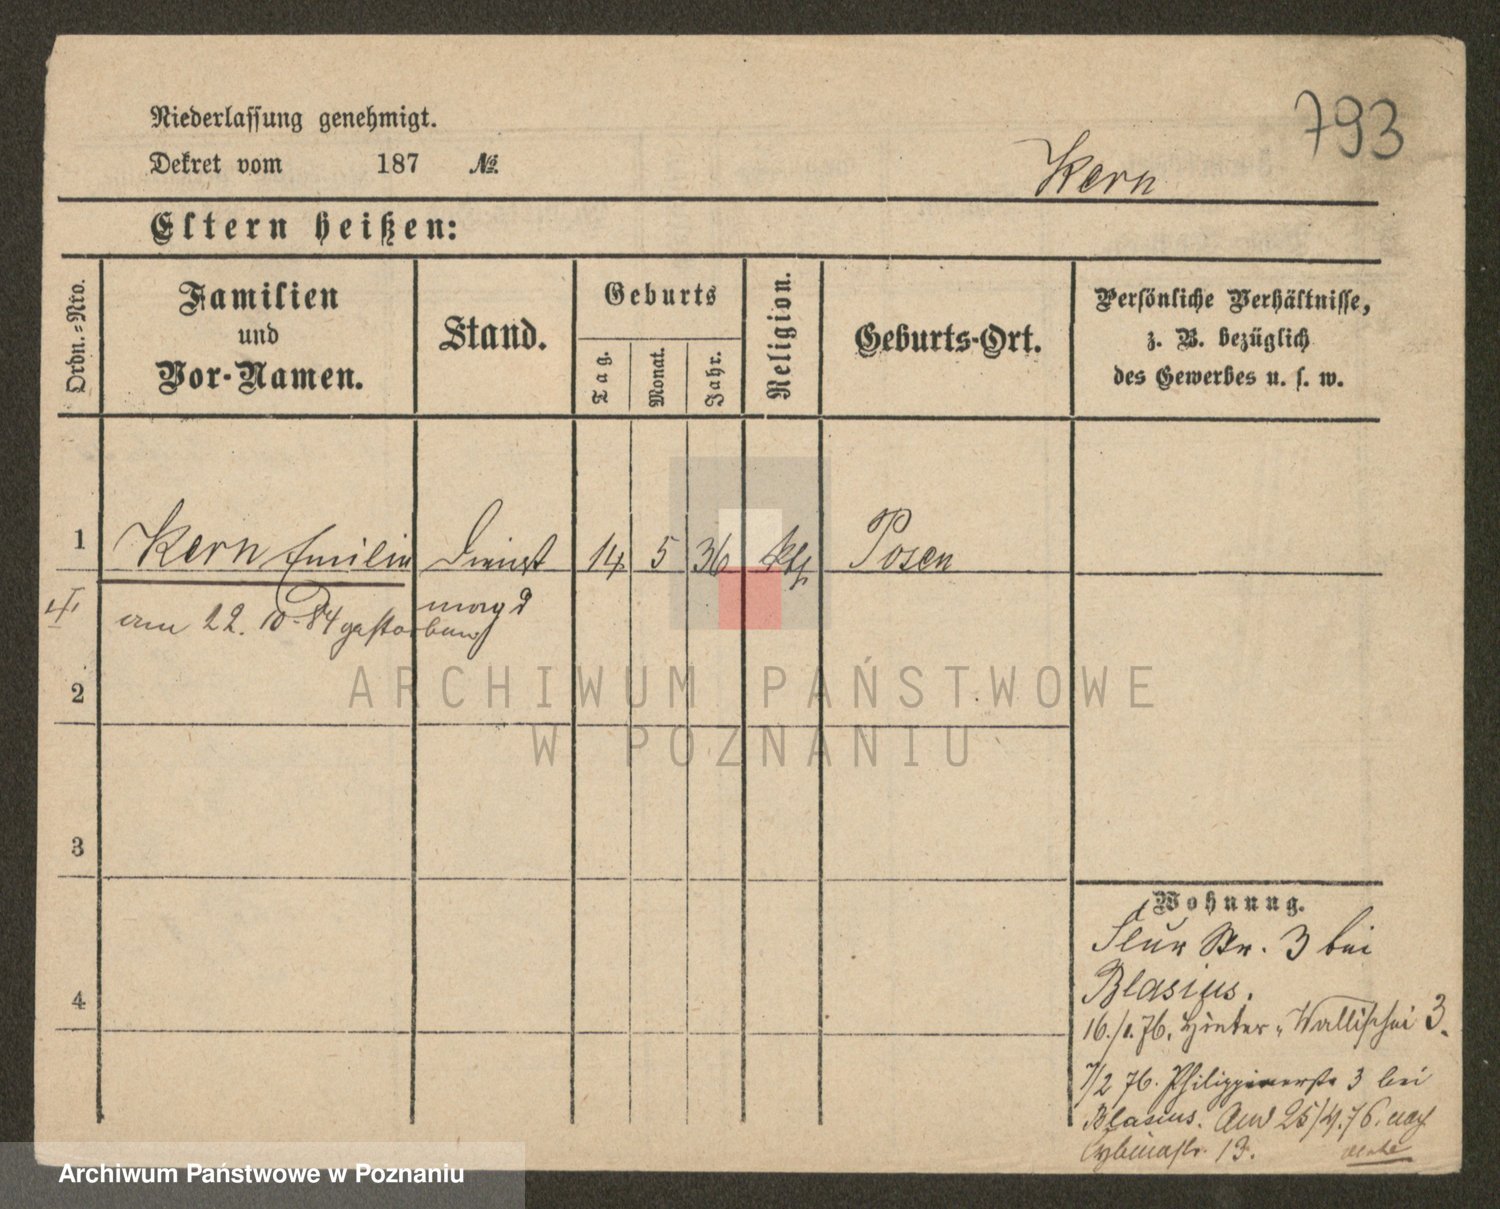 793
Niederlassung genehmigt.
Dekret vom 187 №
Kern
Eltern heißen:
Ordn.=Nro.
Familien
und
Vor-Namen.
Stand.
Geburts
Tag.
Monat.
Jahr.
Religion.
Geburts-Ort.
Persönliche Verhältnisse,
z. B. bezüglich
des Gewerbes u. s. w.
1 Kern Emilie Dienst 14 5 36 kth Posen
magd
am 22. 10. 84 gestorben
2
3
4
Wohnung.
Str. 3 bei
Blasius.
16./1. 76. Hinter-Wallischei 3.
7/2 76. Philippinerstr 3 bei
Blasius. Am 25/4. 76. nach
Cybinastr. 13.
ARCHIWUM PAŃSTWOWE
W POZNANIU
Archiwum Państwowe w Poznaniu